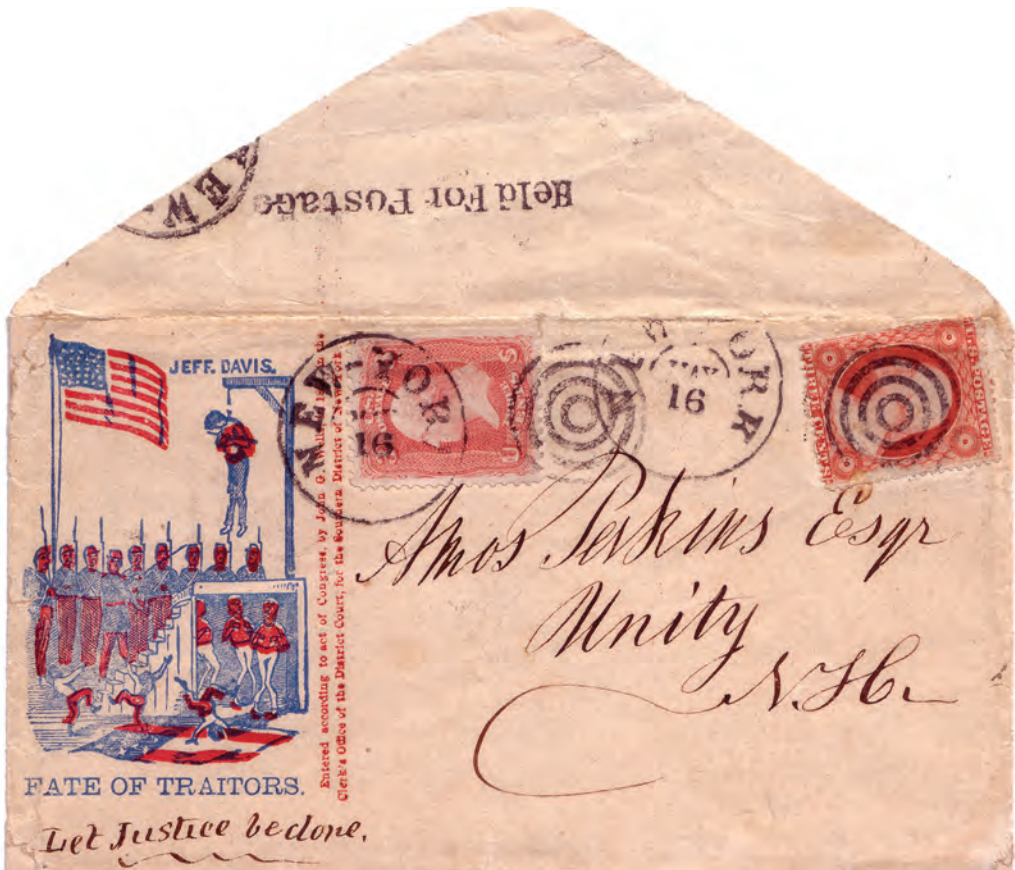 Held For Postage
NEW
JEFF DAVIS.
NEW-YORK
16
NEW YORK
16
U S
U.S. POSTAGE
THREE CENTS
Entered according to act of Congress, by John G. Wells, in the
Clerk's Office of the District Court, for the Southern District of New York
Amos Perkins Esqr
Unity
N.H.
FATE OF TRAITORS.
Let Justice be done.